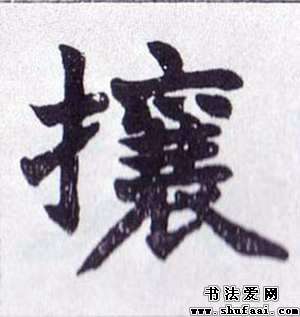 攘
书法爱网
www.shufaai.com